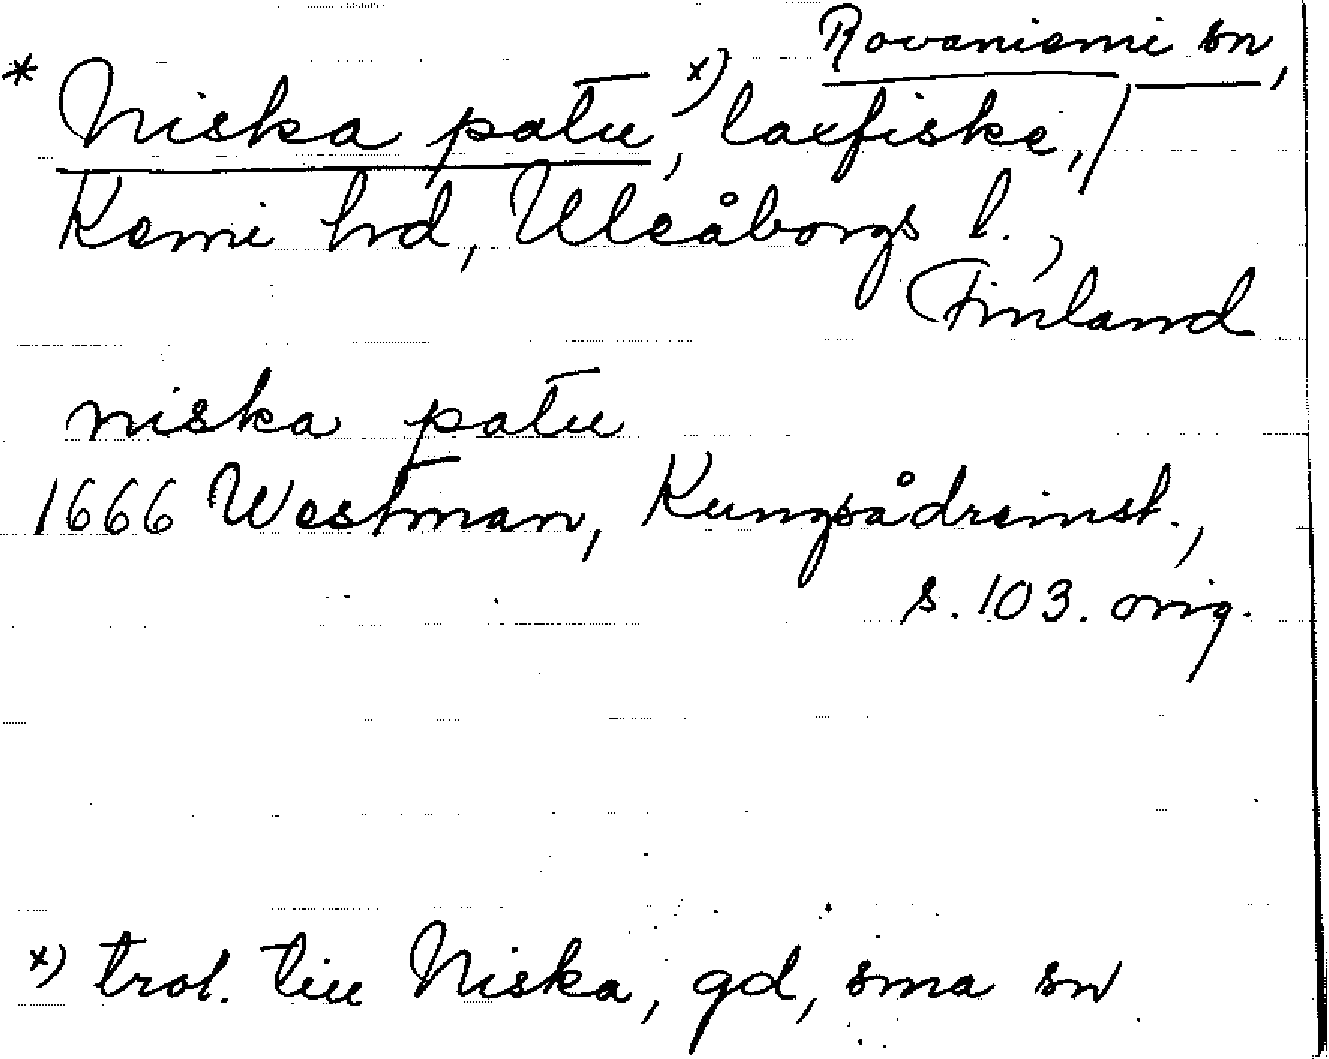 Rovaniemi sn,
* Niska patu, x) laxfiske, /
Kemi hrd, Uleåborgs l.,
Finland
niska patu
1666 Westman, Kungsådreinst.,
s. 103. orig.
x) trol. till Niska, gd, sma sn